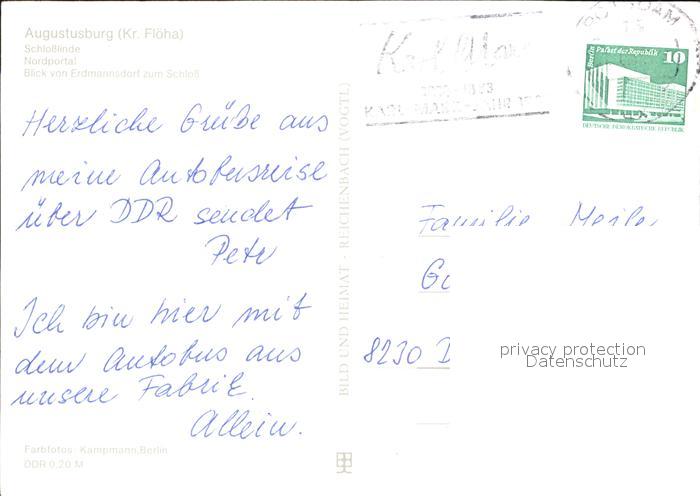 Augustusburg (Kr. Flöha)
Schloßlinde
Nordportal
Blick von Erdmannsdorf zum Schloß
Herzliche Grüße aus
meine Autobusreise
über DDR sendet
Petr
Ich bin hier mit
dem Autobus aus
unsere Fabrik.
Allein.
Farbfotos: Kampmann, Berlin
DDR 0,20 M
BILD UND HEIMAT · REICHENBACH (VOGTL)
Karl Marx
KARL-MARX-JAHR
POTSDAM
Berlin Palast der Republik
10
DEUTSCHE DEMOKRATISCHE REPUBLIK
Familie
8230
privacy protection
Datenschutz